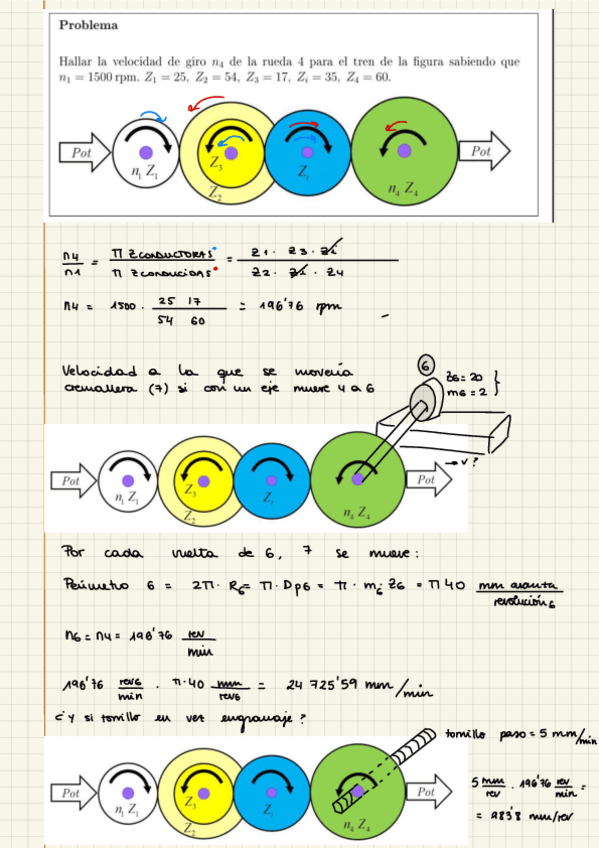 Problema
Hallar la velocidad de giro n₄ de la rueda 4 para el tren de la figura sabiendo que
n₁ = 1500 rpm. Z₁ = 25, Z₂ = 54, Z₃ = 17, Zᵢ = 35, Z₄ = 60.
Pot n₁ Z₁ Z₃ Z₂ Zᵢ n₄ Z₄ Pot
n4 / n1 = π Z CONDUCTORAS / π Z CONDUCIDAS = Z1 · Z3 · Zi / Z2 · Zi · Z4
n4 = 1500 · 25 17 / 54 60 = 196'76 rpm
Velocidad a la que se movería
cremallera (7) si con un eje mueve 4 a 6
6
Z6 = 20
m6 = 2
→ v ?
Pot n₁ Z₁ Z₃ Z₂ Zᵢ n₄ Z₄ Pot
Por cada vuelta de 6, 7 se mueve:
Perímetro 6 = 2π · R6 = π · Dp6 = π · m6 · Z6 = π 40 mm avanza / revolución6
n6 = n4 = 196'76 rev / min
196'76 rev6 / min · π · 40 mm / rev6 = 24 725'59 mm/min
¿Y si tornillo en vez engranaje?
tornillo paso = 5 mm/min
Pot n₁ Z₁ Z₃ Z₂ Zᵢ n₄ Z₄ Pot
5 mm / rev · 196'76 rev / min =
= 983'8 mm/rev